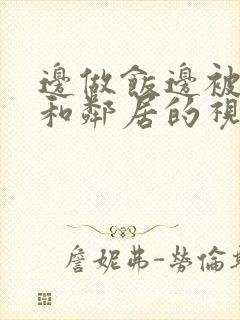 邊做飯邊被
和鄰居的視
詹妮弗-勞倫斯